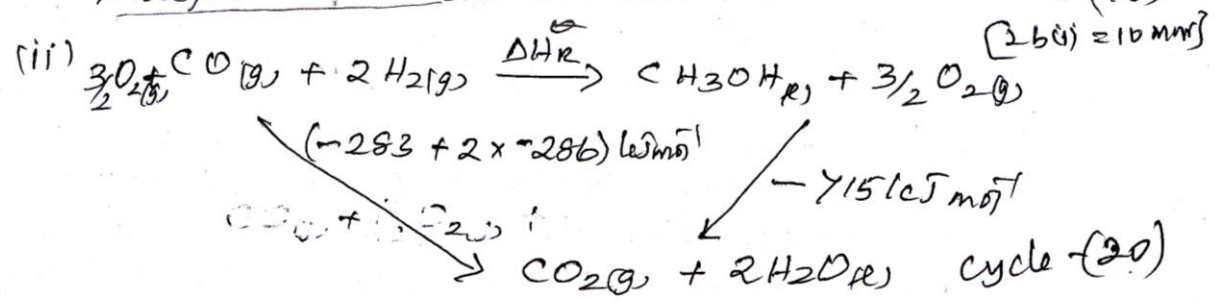 [2b(i) = 10 mm]
(ii) 3/2 O2(g) + CO(g) + 2 H2(g) ΔH⦵R → CH3OH(l) + 3/2 O2(g)
(-283 + 2 x -286) kJmol⁻¹
-715 kJ mol⁻¹
CO2(g) + 2H2O(l) cycle -(20)